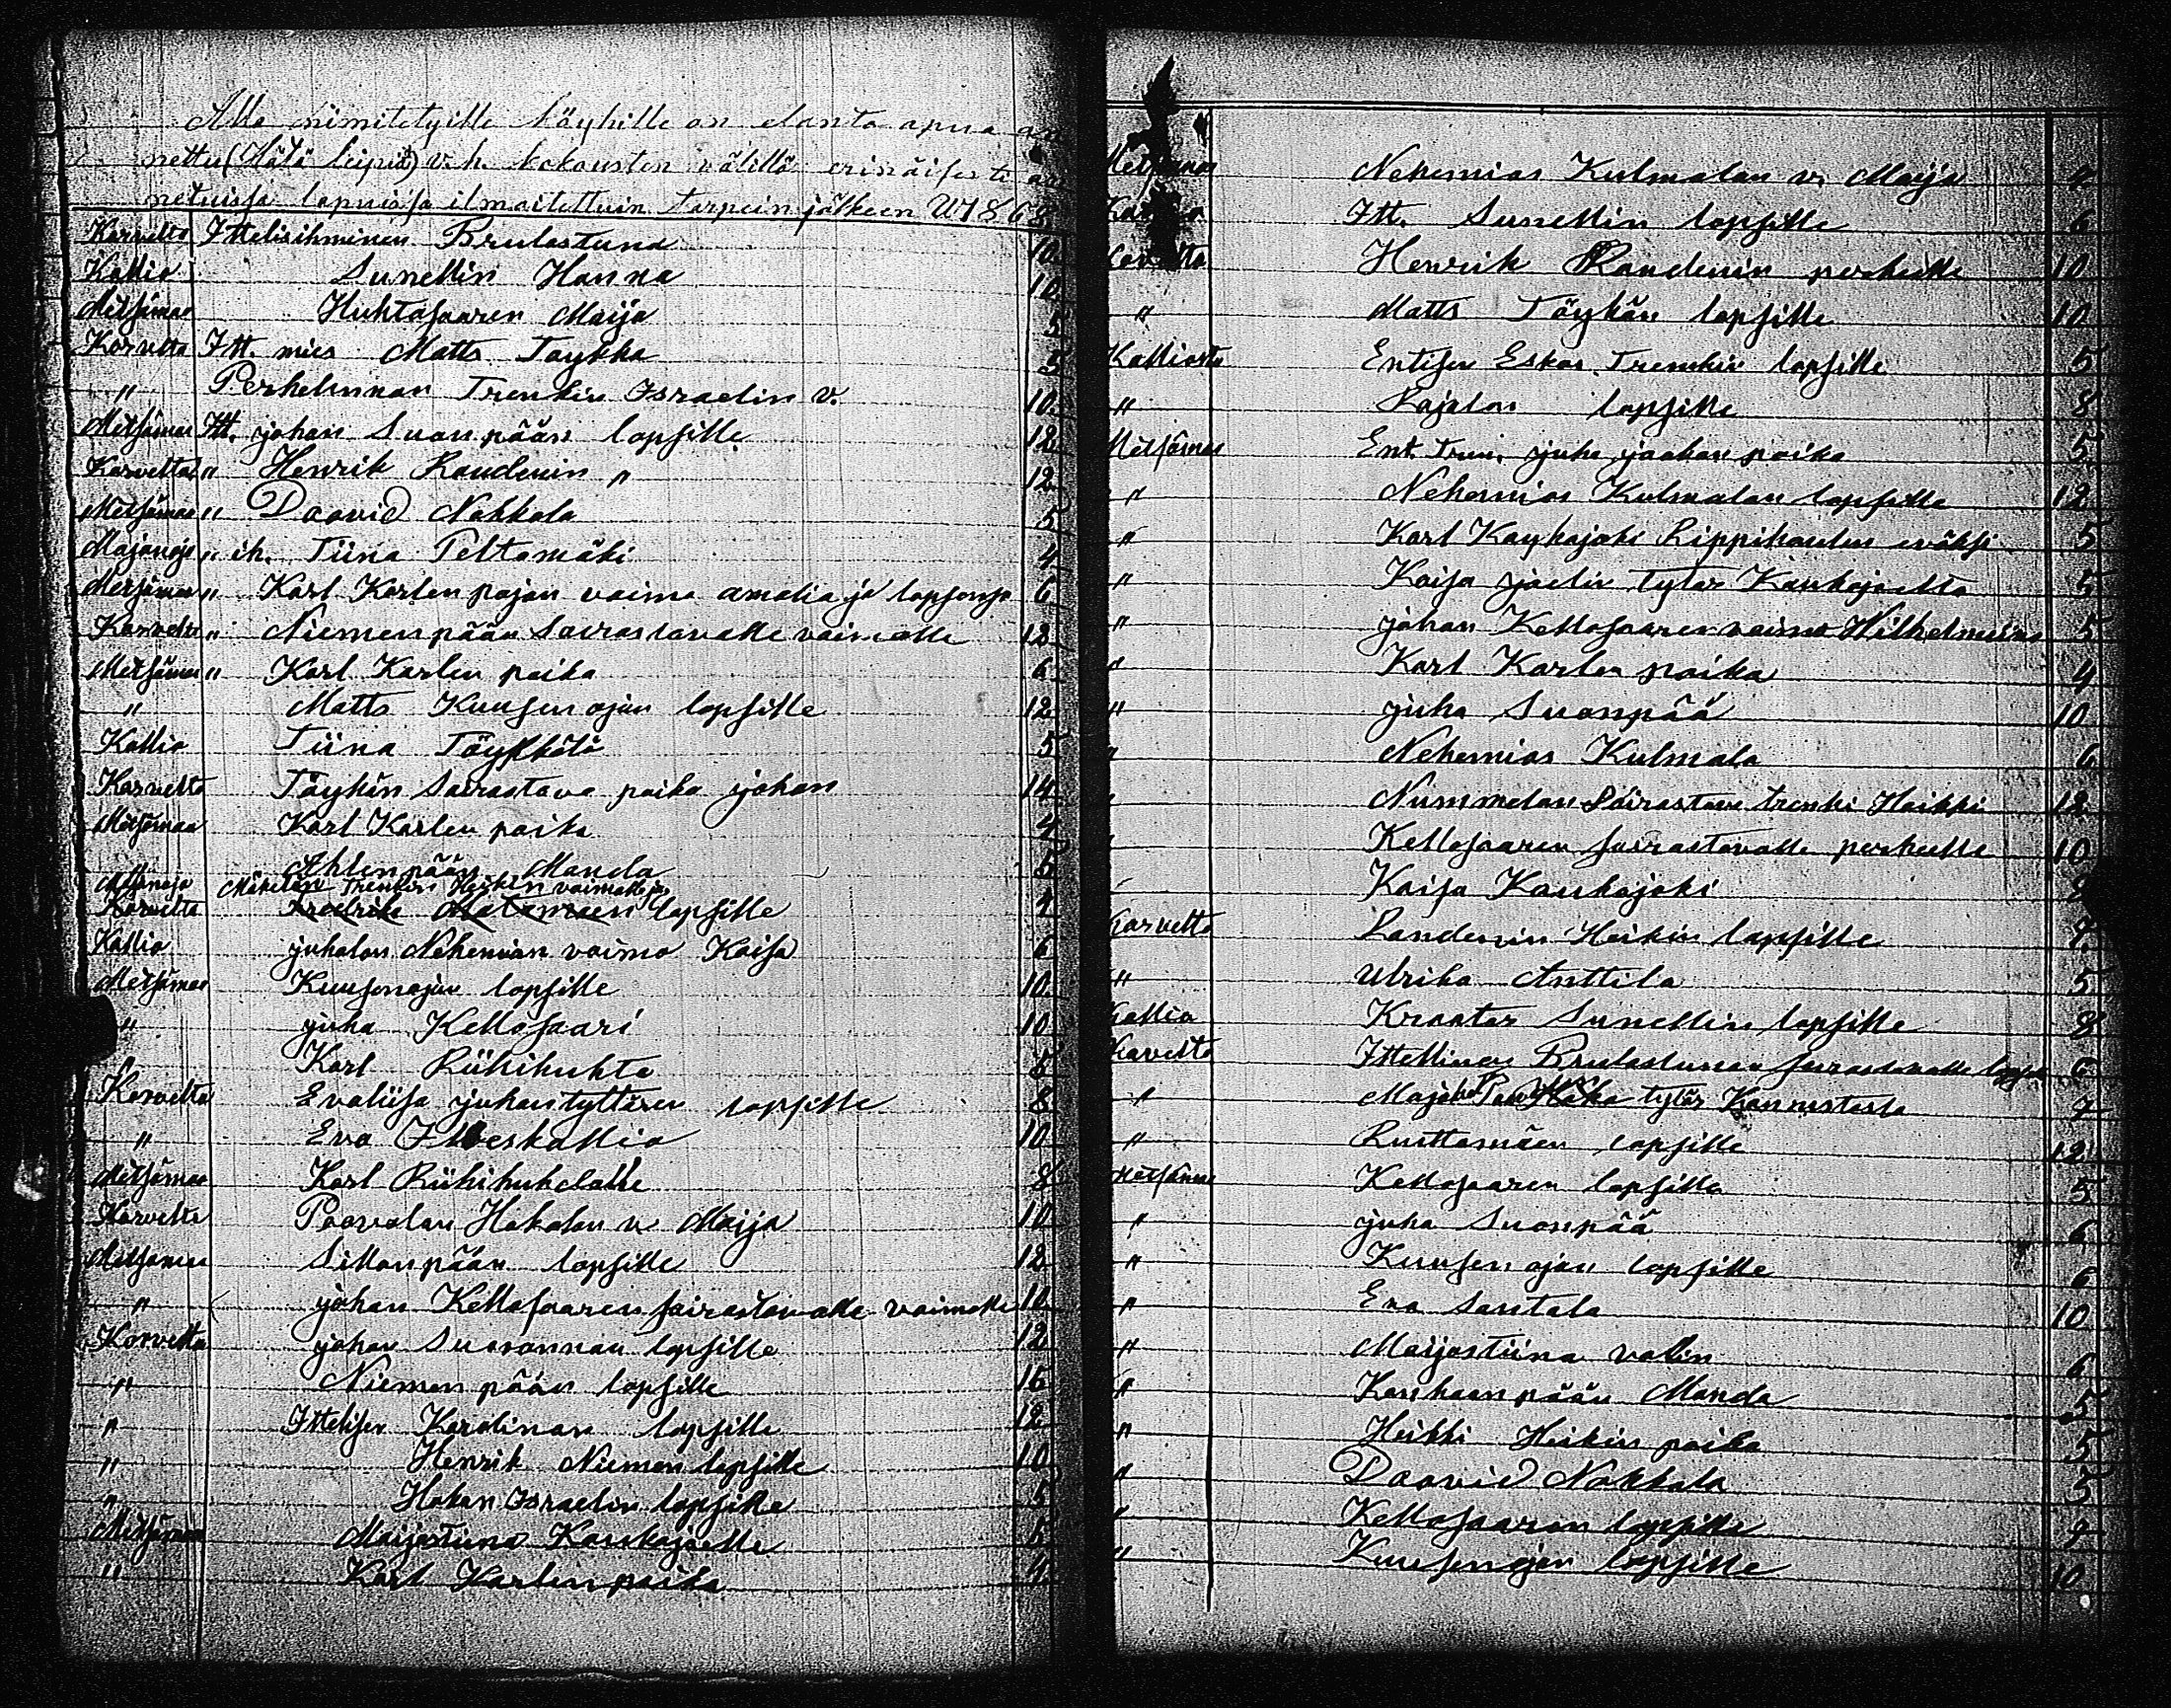 Alla nimitetyille köyhille on elanto apua an
nettu (Hätä leipiä) v.k. kokousten välillä erinäisesti an
netuissa lapuissa ilmoitettuin tarpein jälkeen W 1868
Karvelta Ittelisihminen Brulastuna 10
Kallio Sunellin Hanna 10
Metsämaa Huhtasaaren Maija 5
Korvelta Itt. mies Matts Taykka 5
" Perhekunnan Trenkin Israelin v. 10
Metsämaa Itt. johan Suonpään lapsille 12
Karvelta " Henrik Randenin " 12
Metsämaa " Daavid Nokkala 5
Majanoja " ih. Tiina Peltomäki 4
Metsämaa " Karl Karlen pojan vaimo amalia ja lapsensa 6
Karvelta " Niemenpään sairastavalle vaimolle 12
Metsämaa " Karl Karlen poika 6
" Matts Kuusenojan lapsille 12
Kallio Tiina Töykkälä 5
Karvelta Täykän sairastava poika johan 14
Metsämaa Karl Karlen poika 4
" Ahlenpään Manda 5
Majanoja Mäkelän Trenkin Heikin vaimolle ja
Korvelta lapsille 4
Kallio juhalan Nehemian vaimo Kaisa 6
Metsämaa Kuusenojan lapsille 10
" juha Kellosaari 10
Karl Riihihuhta 5
Korvelta Evaliisa juhantyttären lapsille 8
" Eva Itteskallio 10
Metsämaa Karl Riihihuhdalle 8
Karvelta Paavolan Hakalan v. Maija 10
Metsämaa Sillanpään lapsille 12
" johan Kellosaaren sairastavalle vaimolle 10
Korvelta johan Suorannan lapsille 12
" Niemenpään lapsille 16
" Ittelisen Karolinan lapsille 12
" Henrik Niemen lapsille 10
" Hakan Israelin lapsille 5
Metsämaa Maijastiina Kauhajoelle 5
" Karl Karlin poika 4
Metsämaa Nehemias Kulmalan v. Maija 4
Itt. Sunellin lapsille 6
Korvelta Henrik Randenin perheelle 10
" Matts Töykän lapsille 10
Kalliosta Entisen Eskon Trenkin lapsille 5
" Rajalan lapsille 8
Metsämaa Ent. Tren. juha jaakon poika 5
" Nehemias Kulmalan lapsille 12
" Karl Kauhajoki Rippikoulun eväksi 5
" Kaisa joelin tytär Kauhajoelta 5
" johan Kellosaaren vaimo Wilhelmiina 5
" Karl Karlen poika 4
" juha Suonpää 10
" Nehemias Kulmala 6
" Nummelan Sairastava trenki Heikki 12
" Kellosaaren sairastavalle perheelle 10
Kaisa Kauhajoki
Karvelta Randenin Heikin lapsille 4
" Ulrika Anttila 5
Kallio Kraatar Sunellin lapsille 8
Karvelta Ittellinen Brulastunan sairastavalle 6
" tytär Kannistosta 7
" Ruittamäen lapsille 12
Metsämaa Kellosaaren lapsille 5
" juha Suonpää 6
" Kuusenojan lapsille 6
" Eva Santala 10
" Maijastiina valin 6
" Kauhaanpään Manda 5
" Heikki Heikin poika 5
" Daavid Nokkala 5
" Kellosaaren lapsille 9
" Kuusenojan lapsille 10